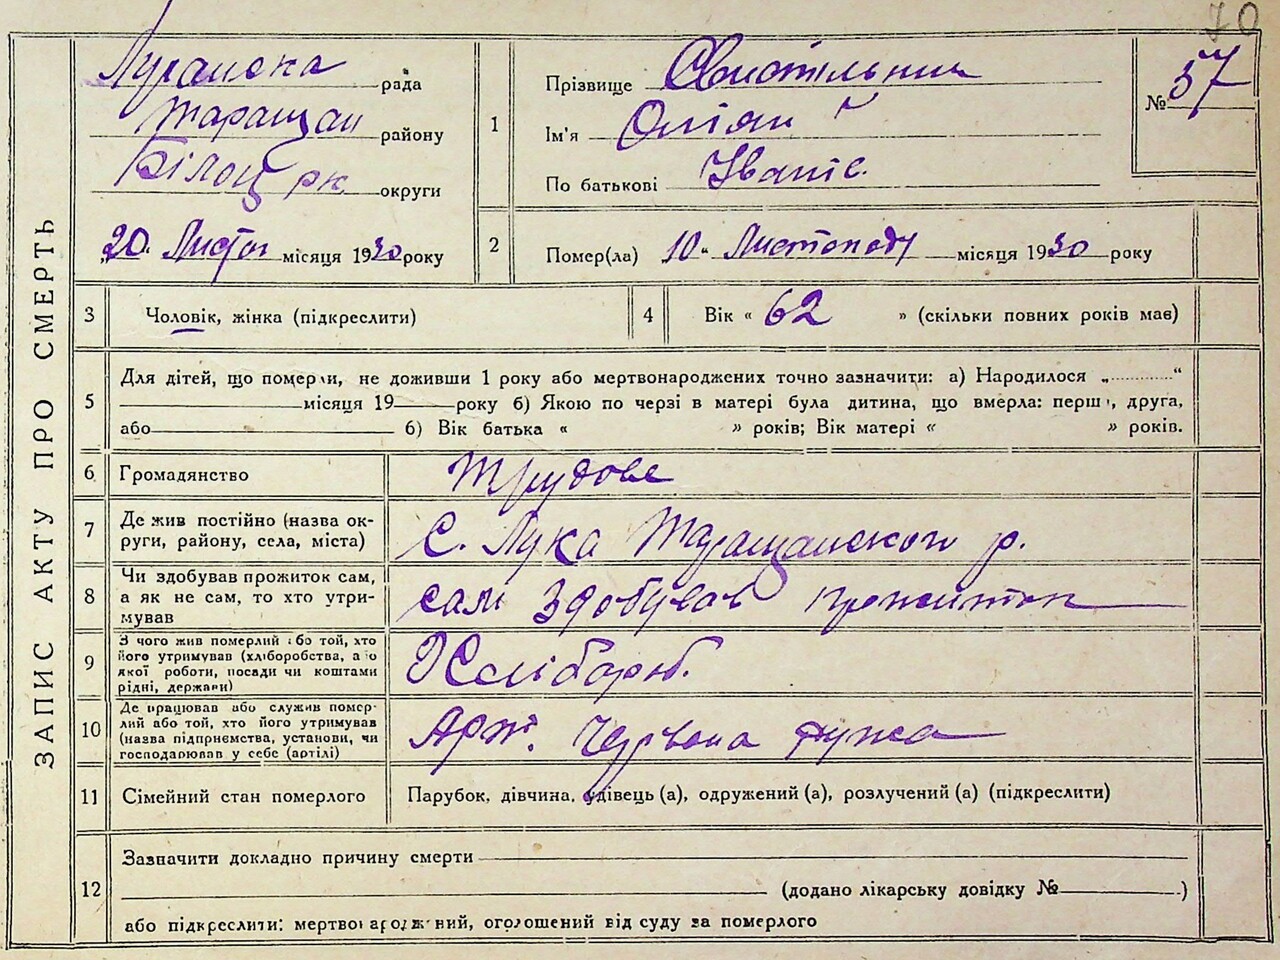 70
ЗАПИС АКТУ ПРО СМЕРТЬ
Луганска рада
Таращан району
Білоцрк округи
„20“ Листоп місяця 1930 року
1
Прізвище Свистільник
Ім'я
По батькові Іваніє.
№ 57
2
Помер(ла) 10“ Листопаду місяця 1930 року
3
Чоловік, жінка (підкреслити)
4
Вік « 62 » (скільки повних років мав)
5
Для дітей, що померли, не доживши 1 року або мертвонароджених точно зазначити: а) Народилося „............“
місяця 19 року б) Якою по черзі в матері була дитина, що вмерла: перш, друга,
або б) Вік батька « » років; Вік матері « » років.
6
Громадянство
Трудове
7
Де жив постійно (назва ок-
руги, району, села, міста)
С. Лука Таращанского р.
8
Чи здобував прожиток сам,
а як не сам, то хто утри-
мував
сам здобував прожиток
9
З чого жив померлий або той, хто
його утримував (хліборобства, а о
якої роботи, посади чи коштами
рідні, держави)
Хлібороб.
10
Де працював або служив помер-
лий або той, хто його утримував
(назва підприємства, установи, чи
господарював у себе (артілі)
Арт. Червона
11
Сімейний стан померлого
Парубок, дівчина, удівець (а), одружений (а), розлучений (а) (підкреслити)
12
Зазначити докладно причину смерти
(додано лікарську довідку № )
або підкреслити: мертвонароджений, оголошений від суду за померлого